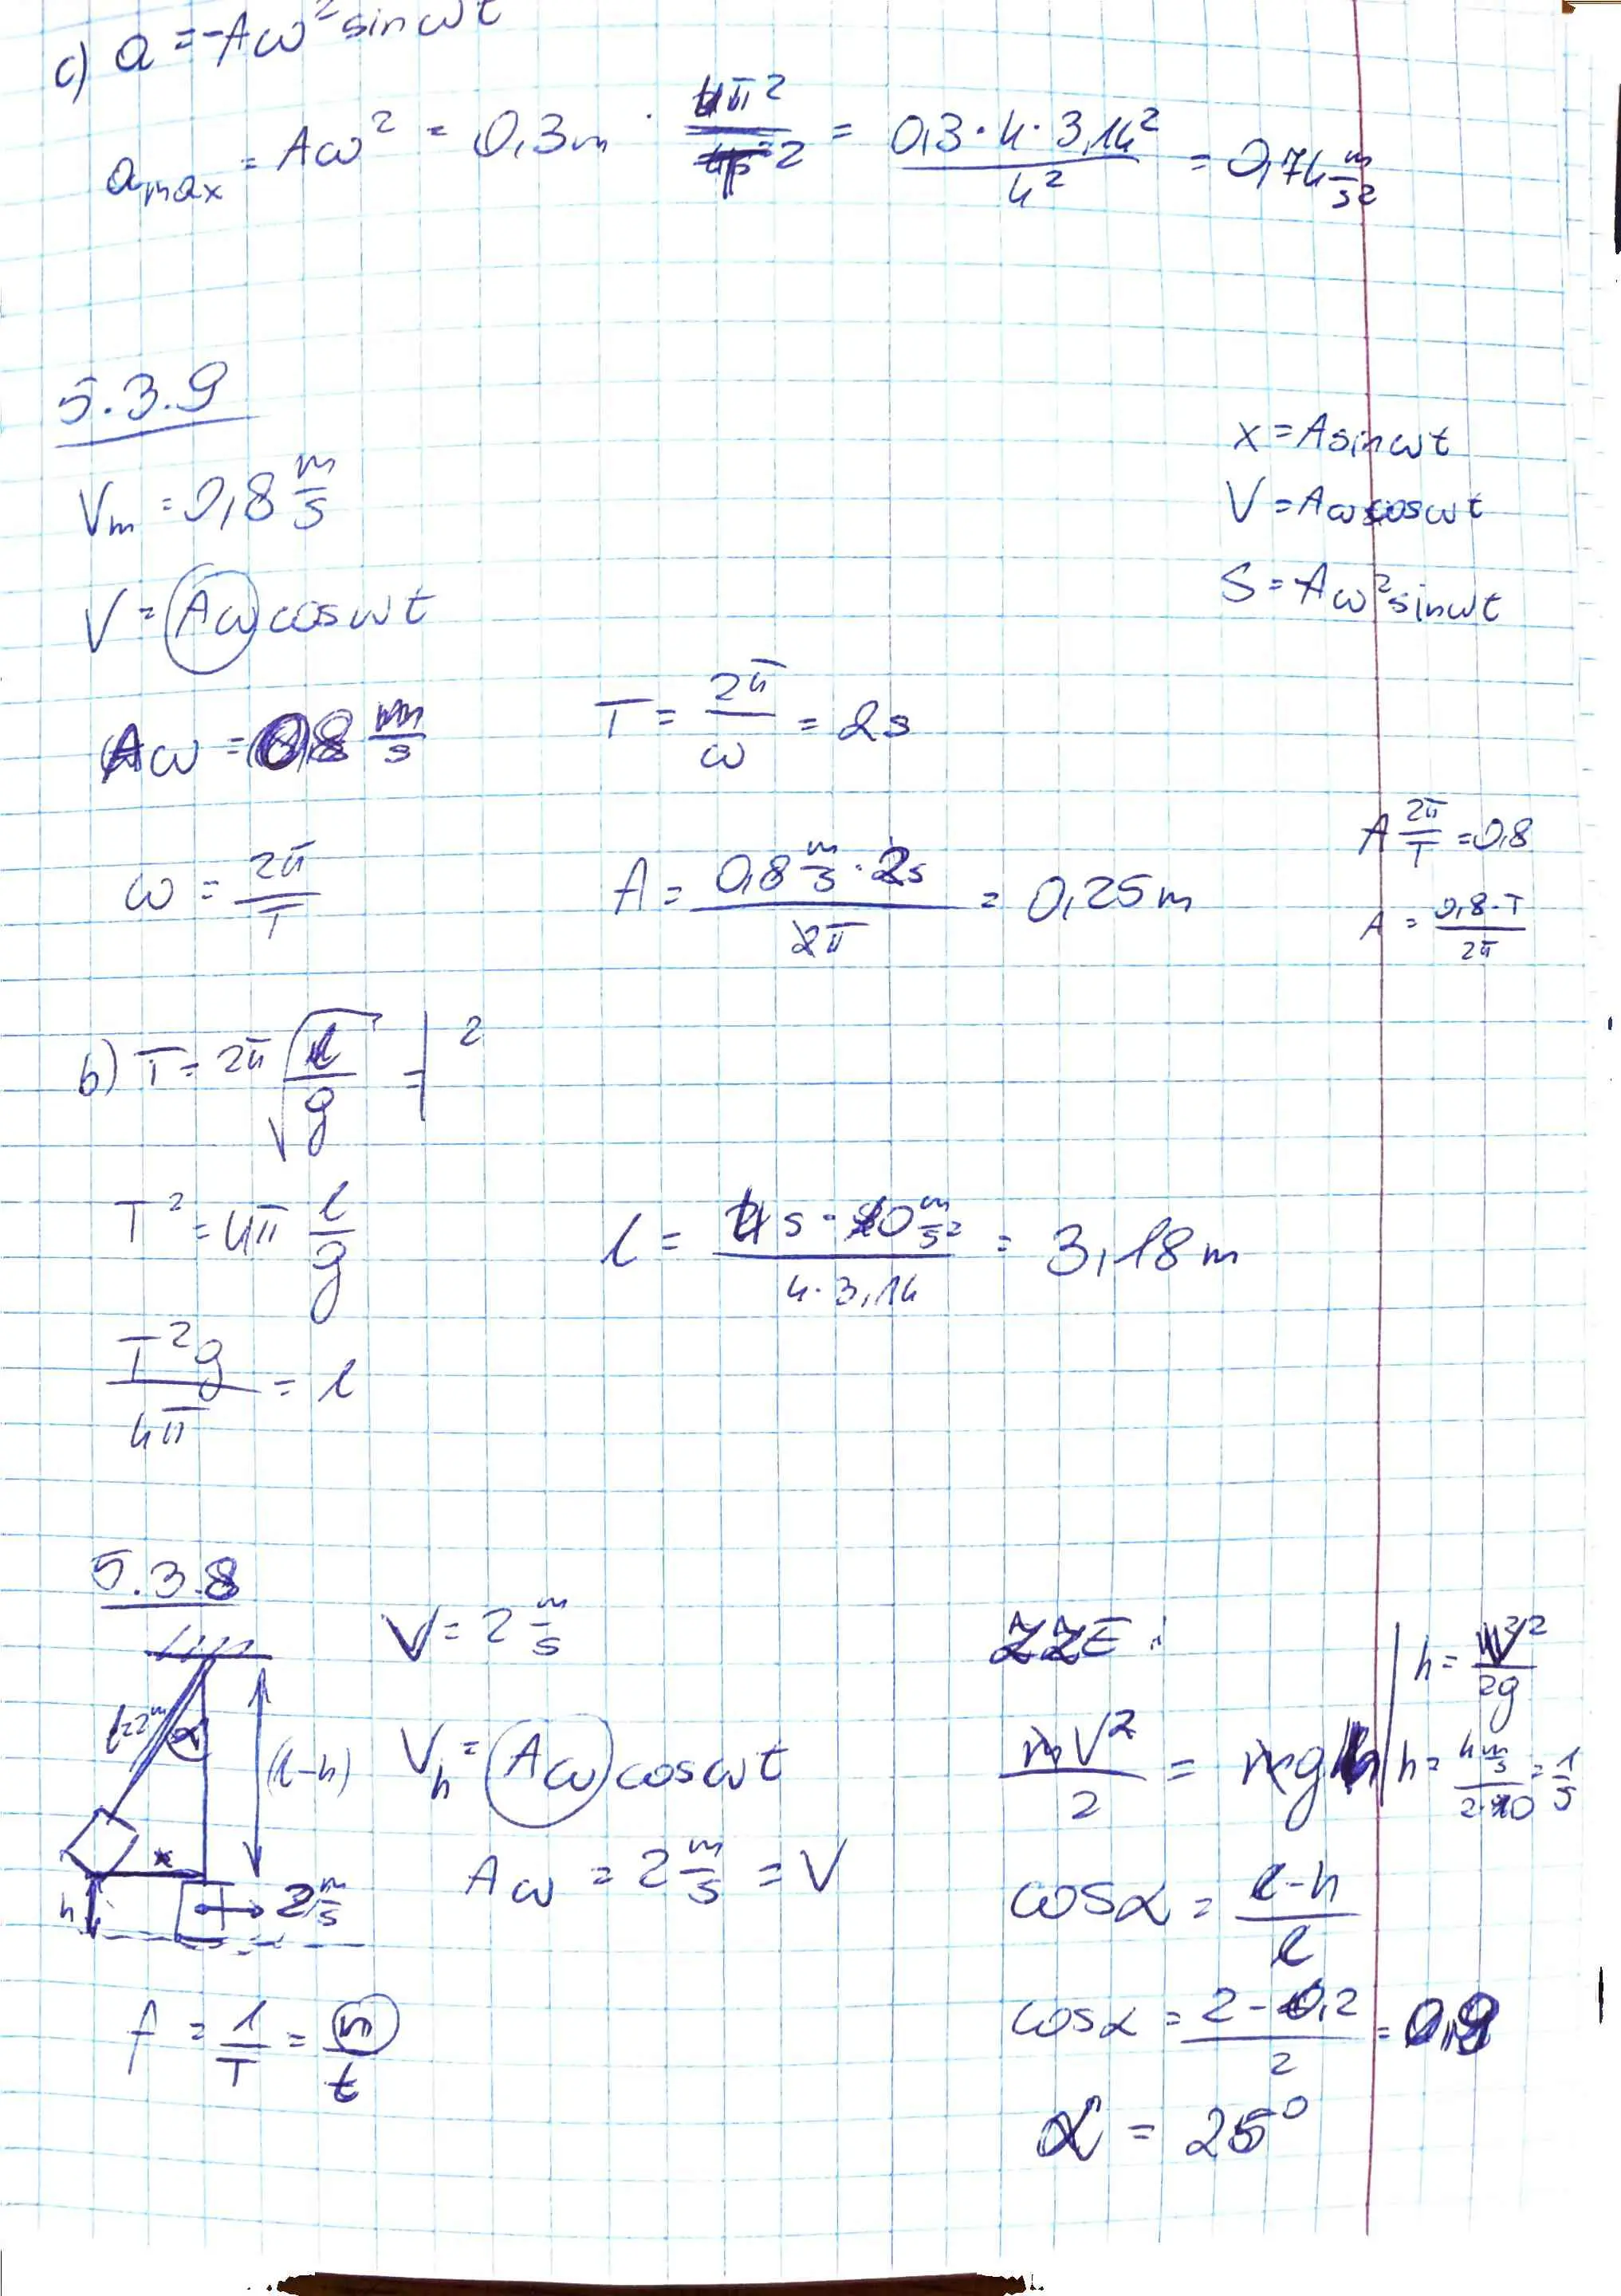 c) a = -Aω² sin ωt
a_max = Aω² = 0,3m · 4π² / 4² = 0,3·4·3,14² / 4² = 0,74 m/s²
5.3.9
V_m = 0,8 m/s
x = A sin ωt
V = Aω cos ωt
S = -Aω² sin ωt
V = Aω cos ωt
Aω = 0,8 m/s
T = 2π/ω = 2s
ω = 2π/T
A = 0,8 m/s · 2s / 2π = 0,25 m
A 2π/T = 0,8
A = 0,8·T / 2π
b) T = 2π √(l/g) = |²
T² = 4π l/g
l = 4s · 10 m/s² / 4·3,14 = 3,18 m
T²g / 4π = l
5.3.8
V = 2 m/s
ZZE:
h = V²/2g
l=2m
α
(l-h)
V_h = Aω cos ωt
mV²/2 = mgh
h = 4 m/s / 2·10 = 1/5
x
h
2 m/s
Aω = 2 m/s = V
cosα = l-h / l
f = 1/T = n/t
cosα = 2-0,2 / 2 = 0,9
α = 25°